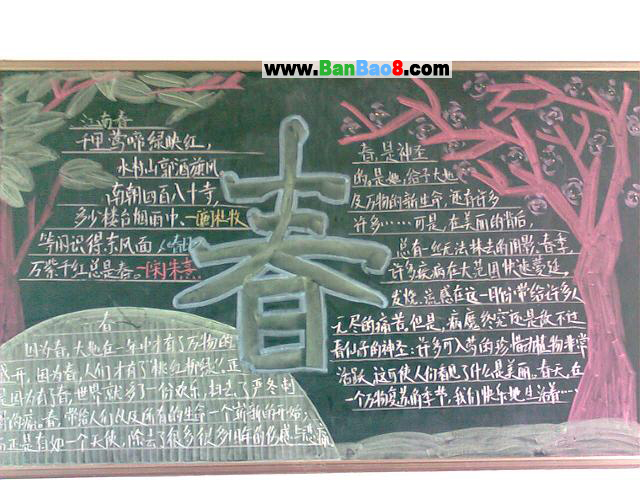 www.BanBao8.com
江南春
千里莺啼绿映红，
水村山郭酒旗风。
南朝四百八十寺，
多少楼台烟雨中。—唐杜牧
等闲识得东风面
万紫千红总是春。—宋朱熹
春
春
因为春，大地在一年中才有了万物的
开，因为春，人们才有了“桃红柳绿”。正
是因为有了春，世界就多了一份欢乐，扫去了严冬
的病。春，带给人们以及所有的生命一个崭新的
正是有如一个天使，除去了很多很多的伤感与悲痛
春，是神圣
的。是她，给予大地
及万物的新生命，还有许多
许多……可是，在美丽的背后，
总有一丝无法抹去的阴影，春季，
许多疾病在大范围快速蔓延，
发烧、流感在这一月份常给许多人
无尽的痛苦。但是，病魔终究还是敌不过
春仙子的神圣：许多可入药的珍惜动植物非常
活跃，这可使人们看见了什么是美丽。春天，在
一个万物复苏的季节，我们快乐地生活着…